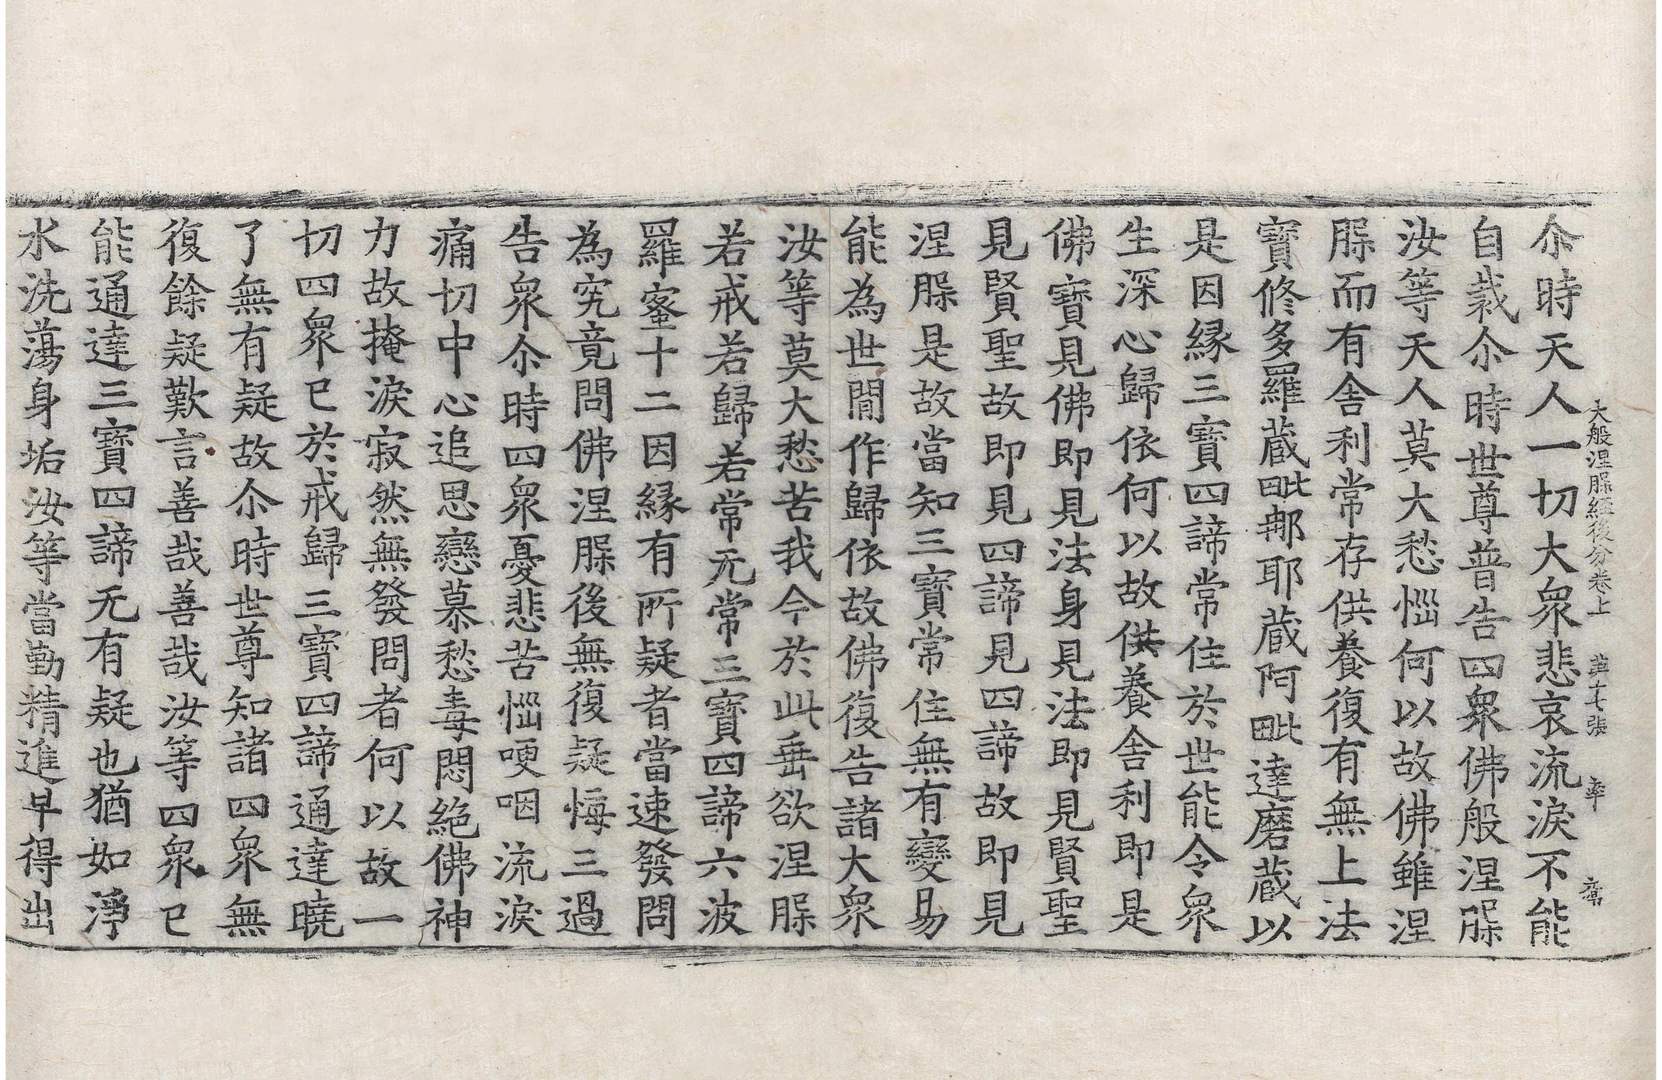 大般涅槃經後分卷上 第十七張 率
尒時天人一切大衆悲哀流淚不能
自裁尒時世尊普告四衆佛般涅槃
汝等天人莫大愁惱何以故佛雖涅
槃而有舍利常存供養復有無上法
寶修多羅藏毗那耶藏阿毗達磨藏以
是因縁三寶四諦常住於世能令衆
生深心歸依何以故供養舍利即是
佛寶見佛即見法身見法即見賢聖
見賢聖故即見四諦見四諦故即見
涅槃是故當知三寶常住無有變易
能為世間作歸依故佛復告諸大衆
汝等莫大愁苦我今於此垂欲涅槃
若戒若歸若常无常三寶四諦六波
羅蜜十二因縁有所疑者當速發問
為究竟問佛涅槃後無復疑悔三過
告衆尒時四衆憂悲苦惱哽咽流淚
痛切中心追思戀慕愁毒悶絶佛神
力故掩淚寂然無發問者何以故一
切四衆已於戒歸三寶四諦通達曉
了無有疑故尒時世尊知諸四衆無
復餘疑歎言善哉善哉汝等四衆已
能通達三寶四諦无有疑也猶如淨
水洗蕩身垢汝等當勤精進早得出